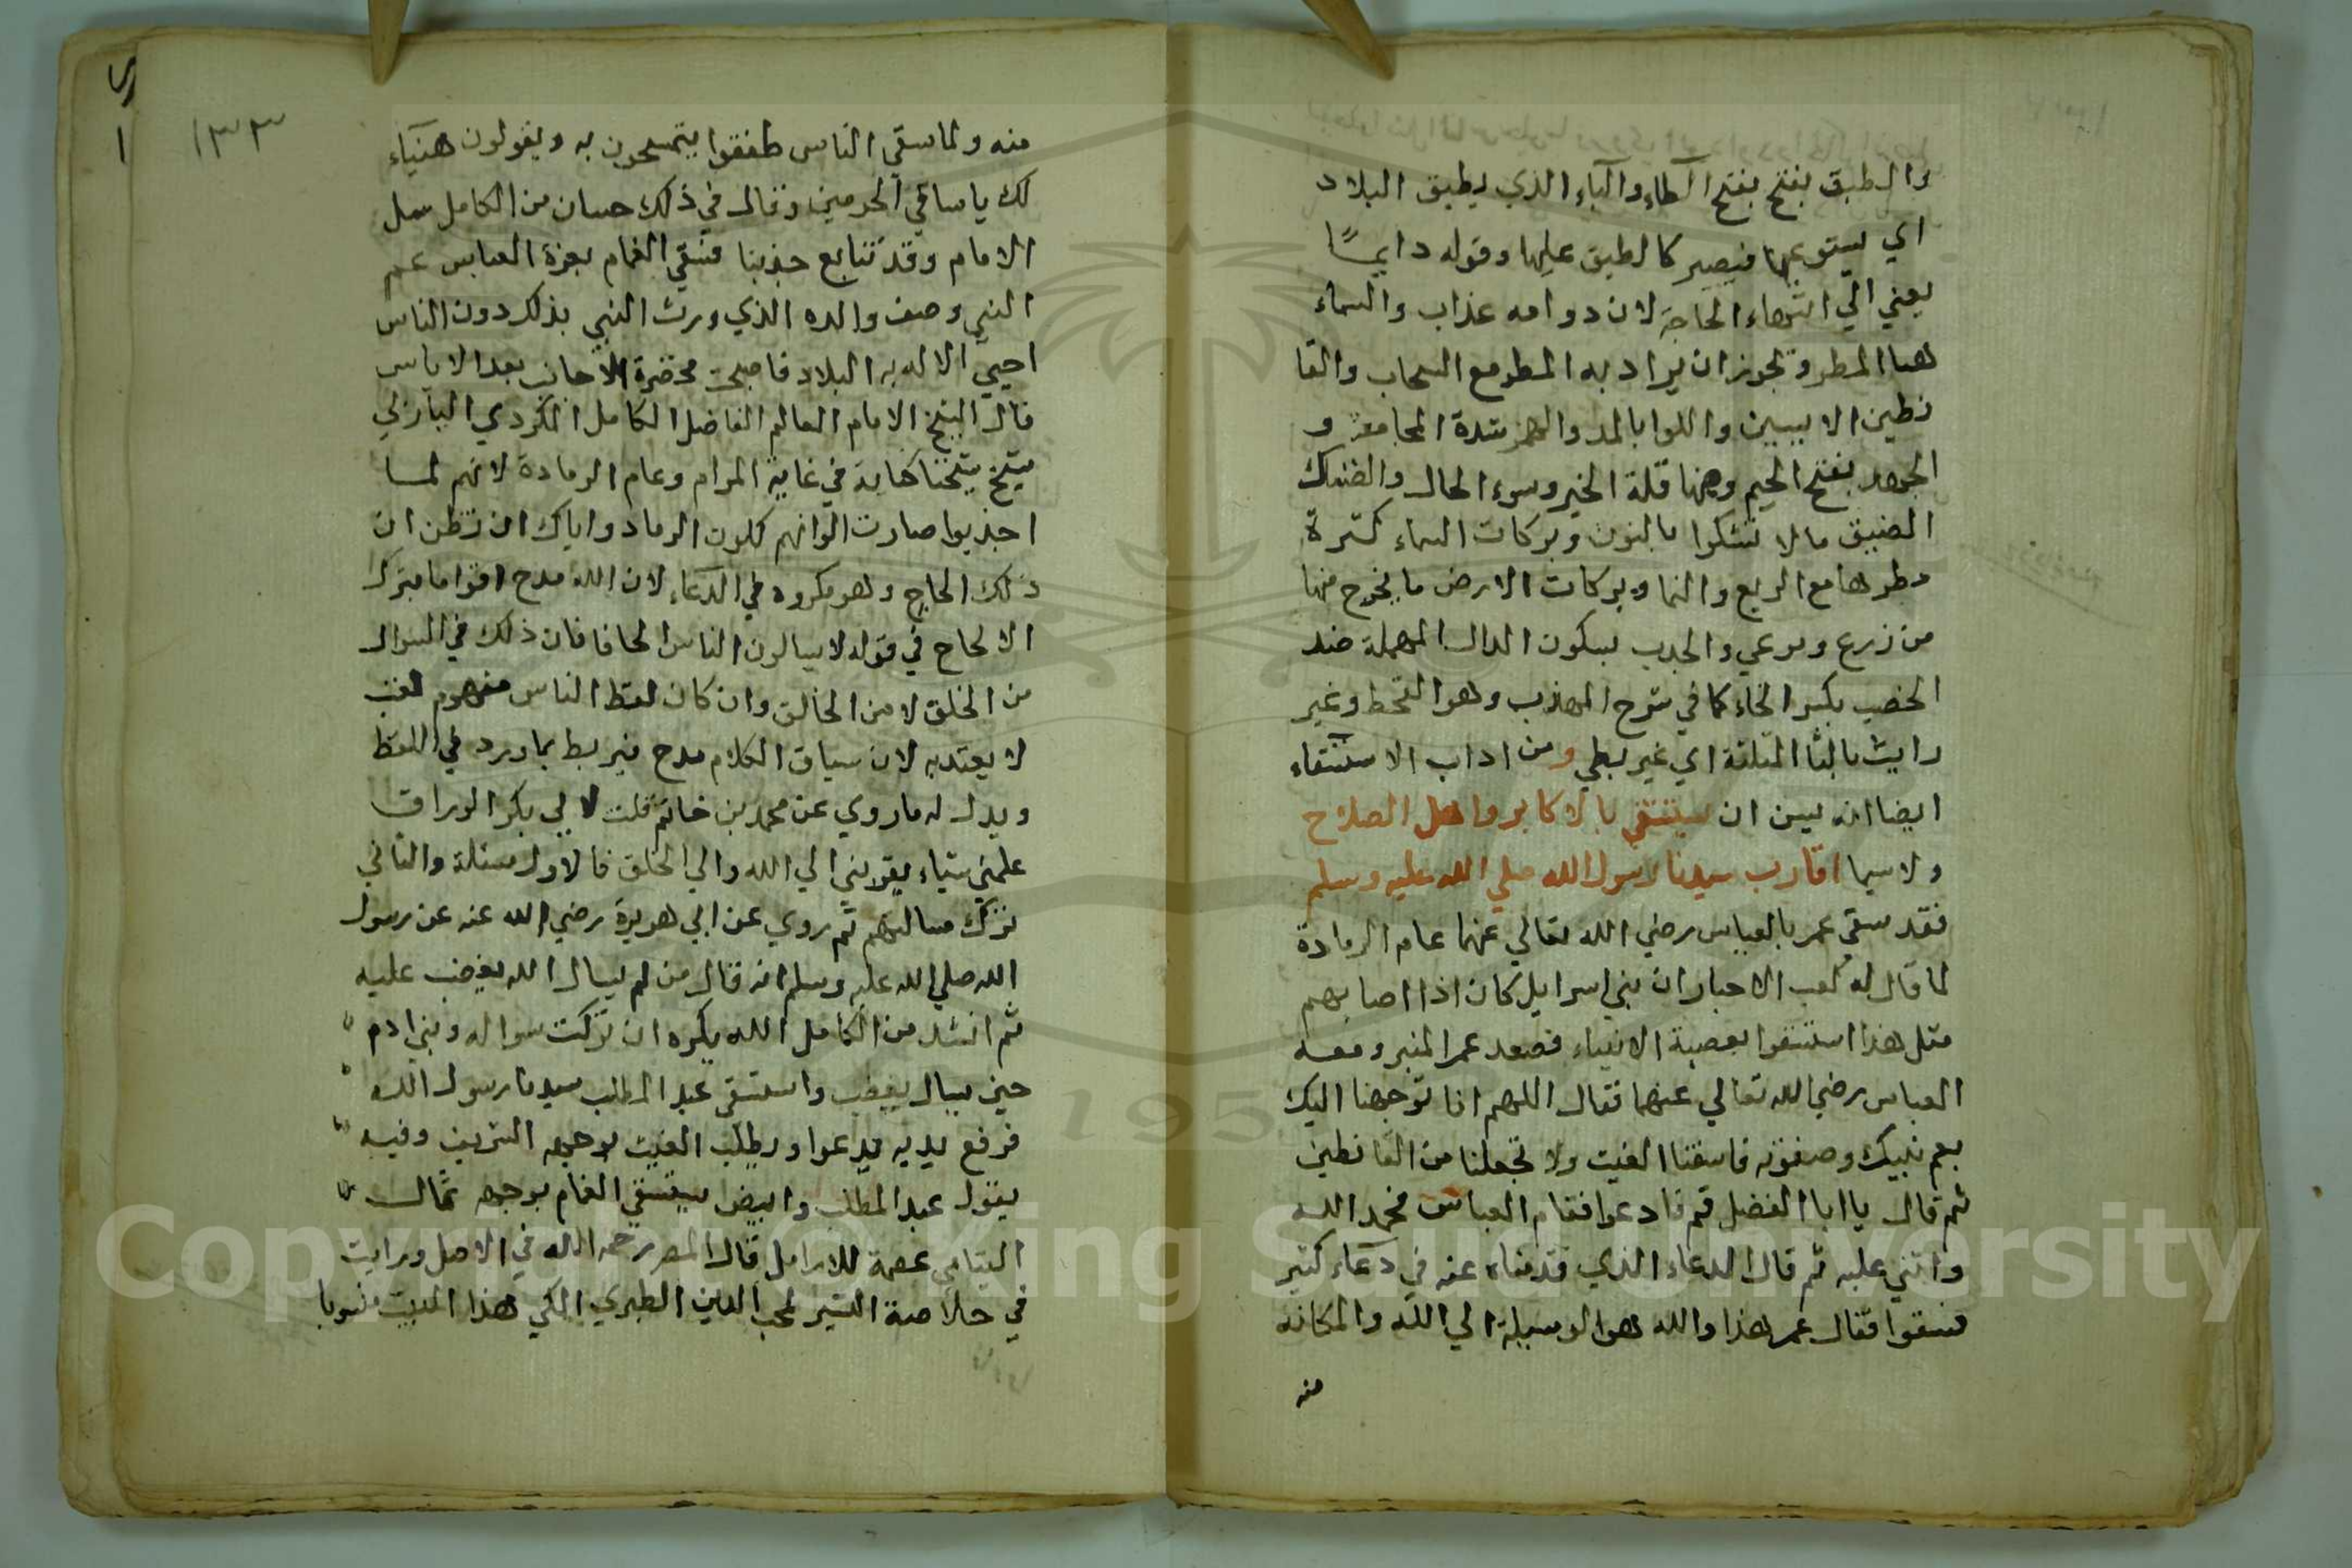 والطبق بفتح بفتح الطاء والباء الذي يطبق البلاد
اي يستوعبها فيصير كالطبق عليها وقوله دايمًا
يعني الي انتهاء الحاجة لان دوامه عذاب والسماء
هنا المطر وتجوز ان يراد به المطر مع السحاب والقا
نطين الايسين واللوا بالمد والهمز شدة المجاعة و
الجهد بفتح الجيم وضمها قلة الخير وسوء الحال والضنك
الضيق ما لا نشكوا بالنون وبركات السماء كثرة
مطرها مع الريع والنما وبركات الارض ما يخرج منها
من زرع ومرعي والجدب بسكون الدال المهملة ضد
الخصب بكسر الخاء كما في شرح المهذب وهو القحط وغير
رايث بالثا المثلثة اي غير بطي ومن اداب الاستسقاء
ايضا انه يسن ان يستسقي بالاكابر واهل الصلاح
ولا سيما اقارب سيدنا رسول الله صلي الله عليه وسلم
فقد سقي عمر بالعباس رضي الله تعالي عنهما عام الرمادة
لما قال له كعب الاحبار ان بني اسرايل كان اذا اصابهم
مثل هذا استسقوا بعصبة الانبياء فصعد عمر المنبر ومعه
العباس رضي الله تعالي عنهما فقال اللهم انا توجهنا اليك
بعم نبيك وصفوته فاسقنا الغيث ولا تجعلنا من القانطين
ثم قال يا ابا الفضل قم فادعوا فقام العباس فحمد الله
واثني عليه ثم قال الدعاء الذي قدمناه عنه في دعاء كثير
فسقوا فقال عمر هذا والله هو الوسيلة الي الله والمكانة
منه
١٣٣
منه ولما سقي الناس طفقوا يتمسحون به ويقولون هنيآء
لك يا ساقي الحرمين وقال في ذلك حسان من الكامل سال
الامام وقد تتابع جدبنا فسقي الغمام بغرة العباس عم
النبي وصنف والده الذي ورث النبي بذلك دون الناس
احيي الاله به البلاد فاصبحت مخضرة الاجانب بعد الاياس
قال الشيخ الامام العالم الفاضل الكامل الكردي البازلي
شيخ شيخنا في غاية المرام وعام الرمادة لانهم لما
اجدبوا صارت الوانهم كلون الرماد واياك ان تظن ان
ذلك الحاح وهو مكروه في الدعاء لان الله مدح اقواما بترك
الالحاح في قوله لا يسالون الناس الحافا فان ذلك في السوال
من الخلق لا من الخالق وان كان لفظ الناس مفهوم لقب
لا يعتد به لان سياق الكلام مدح فيربط بما ورد في اللفظ
ويدل له ما روي عن محمد بن خاتم قلت لابي بكر الوراق
علمني شياء يقربني الي الله والي الخلق فالاول مسئلة والثاني
بترك مسالتهم ثم روي عن ابي هريرة رضي الله عنه عن رسول
الله صلي الله عليه وسلم انه قال من لم يسال الله يغضب عليه
ثم انشد من الكامل الله يكره ان تركت سواله وبني ادم
حين يسال يغضب واستسقي عبد المطلب سيدنا رسول الله
فرفع يديه يدعوا ويطلب الغيث بوجهه الشريف وفيه
يقول عبد المطلب وابيض يستسقي الغمام بوجهه ثمال
اليتامي عصمة للارامل قال المص رحمه الله في الاصل ورايت
في خلاصة السير لمحب الدين الطبري المكي هذا البيت منسوبا